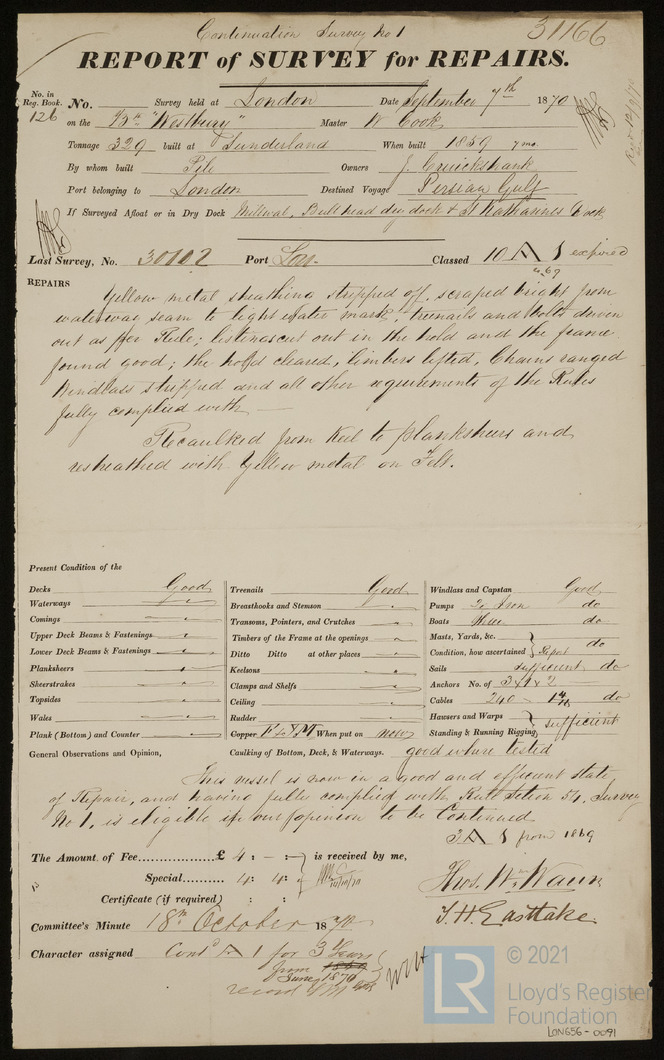 Continuation Survey No 1
31166
REPORT of SURVEY for REPAIRS.
No. in Reg. Book. No. Survey held at London Date September 7th 1870
126 on the "Westbury" Master W Cook
Tonnage 329 built at Sunderland When built 1859 7 mo.
By whom built Pile Owners J. Cruickshank
Port belonging to London Destined Voyage Persian Gulf
If Surveyed Afloat or in Dry Dock Millwall, Bull head dry dock & St Katharines Dock
Last Survey, No. 30102 Port Lon. Classed 10 A 1 expired
REPAIRS
Yellow metal sheathing stripped off, scraped bright from
waterways seam to light water mark, treenails and bolts driven
out as per Rule; listings cut out in the hold and the frame
found good; the hold cleared, limbers lifted, Chains ranged
Windlass stripped and all other requirements of the Rules
fully complied with
Recaulked from Keel to planksheer and
resheathed with Yellow metal on Felt.
Present Condition of the
Decks Good
Waterways "
Comings "
Upper Deck Beams & Fastenings "
Lower Deck Beams & Fastenings "
Planksheers "
Sheerstrakes "
Topsides "
Wales "
Plank (Bottom) and Counter "
Treenails Good
Breasthooks and Stemson "
Transoms, Pointers, and Crutches "
Timbers of the Frame at the openings "
Ditto Ditto at other places "
Keelsons "
Clamps and Shelfs "
Ceiling "
Rudder "
Copper When put on now
Windlass and Capstan Good
Pumps 2 Iron do
Boats Three do
Masts, Yards, &c. do
Condition, how ascertained Report
Sails sufficient do
Anchors No. of 3 x 1 x 2
Cables 240 do
Hawsers and Warps
Standing & Running Rigging sufficient
General Observations and Opinion, Caulking of Bottom, Deck, & Waterways. good where tested
This vessel is now in a good and efficient state
of Repair, and having fully complied with Rule Section 54, Survey
No 1, is eligible in our opinion to be Continued
3 A 1 from 1869
The Amount of Fee................£ 4 : - : is received by me,
Special............ 4 : 4 :
Certificate (if required) : :
Thos. Wm Wawn
T. H. Eastlake
Committee's Minute 18th October 1870
Character assigned Contd A 1 for 3 Years
from 1869
June 1870
© 2021
LR
Lloyd's Register
Foundation
LON656-0091